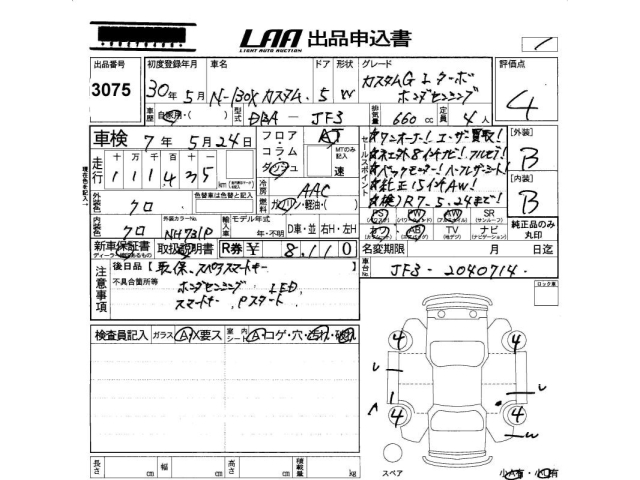 LAA 出品申込書
LIGHT AUTO AUCTION
出品番号 初度登録年月 車名 ドア 形状 グレード 評価点
3075 30年 5月 N-BOXカスタム 5 W カスタムG Lターボ ホンダセンシング 4
車歴 自家用・( ) 型式 DBA - JF3 排気量 660 cc 定員 4人
車検 7年 5月 24日 フロア コラム ダッシュ AT MTのみ記入 速
セールスポイント
★ワンオーナー! ユーザー買取!
★ネェット8インチナビ! フルセグ!
★バックモニター! ハーフレザーシート!
★純正15インチAW!
★検) R7-5.24まで!
[外装] B
[内装] B
走行 十 万 千 百 十 一
111435 km
外装色 クロ 色替車は色替と記入
冷房 AAC
燃料 ガソリン・軽油・( )
内装色 クロ 外装カラーNo. NH731P 輸入車 モデル年式 年・不明 D車・並 右H・左H
PS (パワステ) PW (パワーウィンド) AW (アルミホイル) SR (サンルーフ)
カワ AB (エアバッグ) TV (テレビ) ナビ (ナビゲーション)
純正品のみ丸印
新車保証書 ディーラー印のあるもの 取扱説明書 R券 ¥ 8,110 名変期限 月 日迄
車台No. JF3-2040714
注意事項 後日品【取、保、スペアスマートキー
不具合箇所等 ホンダセンシング LED
スマートキー、Pスタート
ロック車
検査員記入 ガラス A・X要ス 室内 シート A コゲ・穴・汚れ・破れ
4 4
4 4
長さ cm 幅 cm 高さ cm 積載量 kg
スペア
小A有・小U有